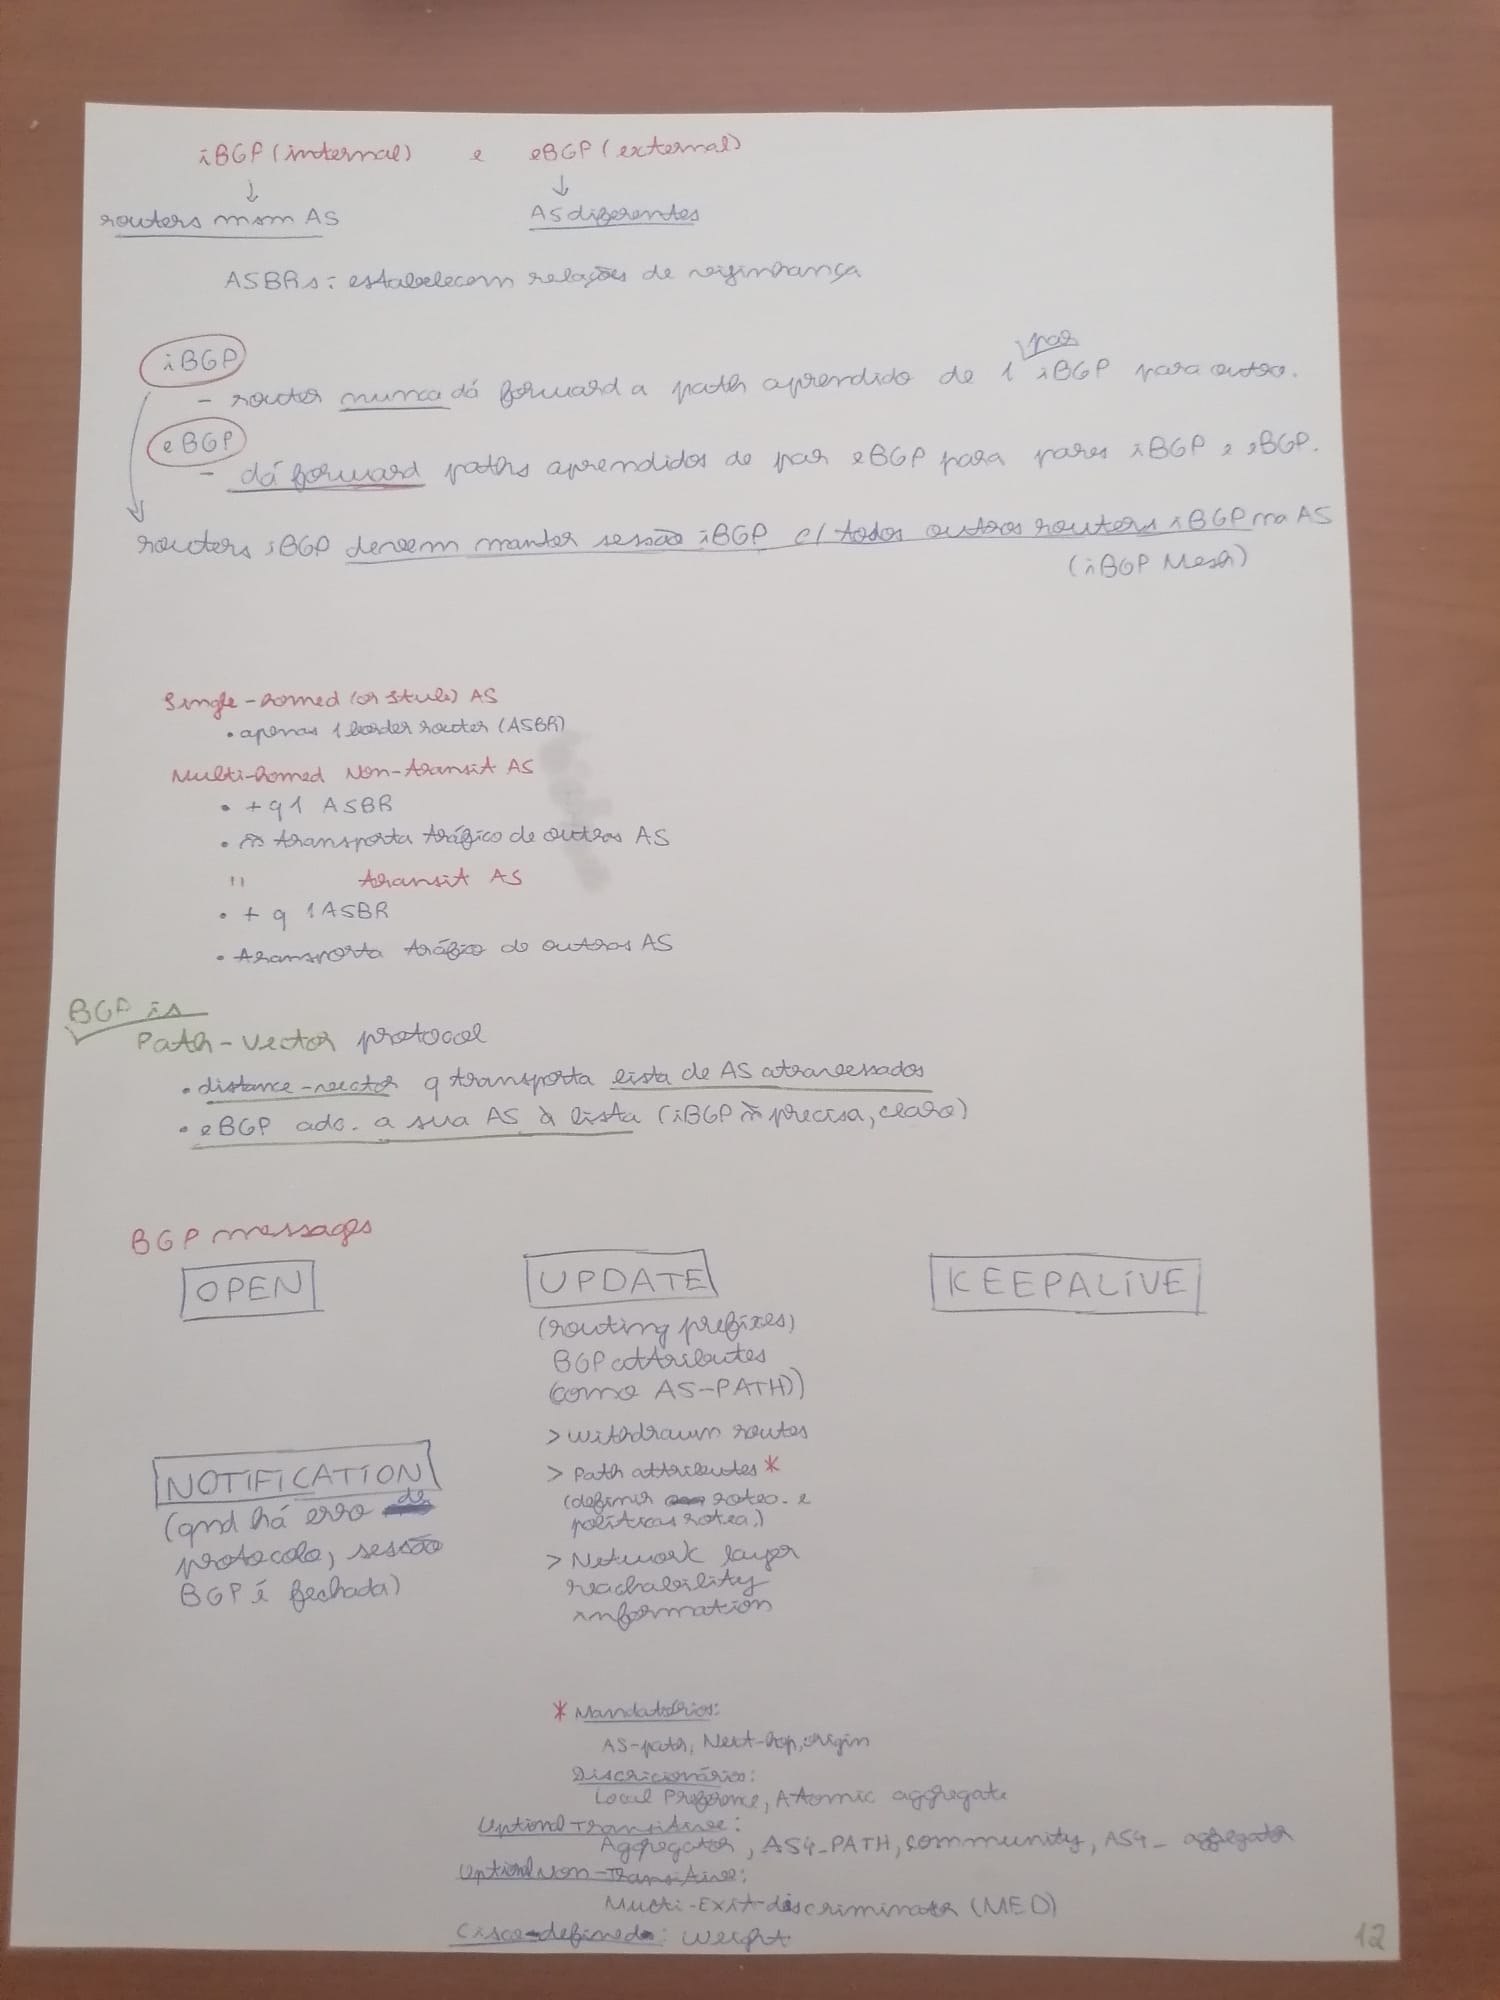 iBGP (internal) e eBGP (external)
↓ ↓
routers msm AS AS diferentes
ASBRs: estabelecem relações de vizinhança
iBGP
par
- router nunca dá forward a path aprendido de 1 iBGP para outro.
eBGP
- dá forward paths aprendidos de par eBGP para pares iBGP e eBGP.
routers iBGP devem manter sessão iBGP c/ todos outros routers iBGP na AS
(iBGP Mesh)
Single-homed (or stub) AS
• apenas 1 border router (ASBR)
Multi-homed Non-transit AS
• + q 1 ASBR
• ñ transporta tráfico de outros AS
" transit AS
• + q 1 ASBR
• transporta tráfico de outros AS
BGP is
Path-vector protocol
• distance-vector q transporta lista de AS atravessados
• eBGP adc. a sua AS à lista (iBGP ñ precisa, claro)
BGP messages
OPEN UPDATE KEEPALIVE
(routing prefixes)
BGP attributes
(como AS-PATH))
> withdrawn routes
NOTIFICATION
> Path attributes *
(qnd há erro de
(definir roteo. e
protocolo, sessão
políticas rotea.)
BGP é fechada)
> Network layer
reachability
information
* Mandatórios:
AS-path, Next-hop, origin
Discricionários:
Local Preference, Atomic aggregate
Optional Transitive:
Aggregator, AS4_PATH, community, AS4_aggregator
Optional Non-Transitive:
Multi-Exit-discriminator (MED)
Cisco-defined: weight
12